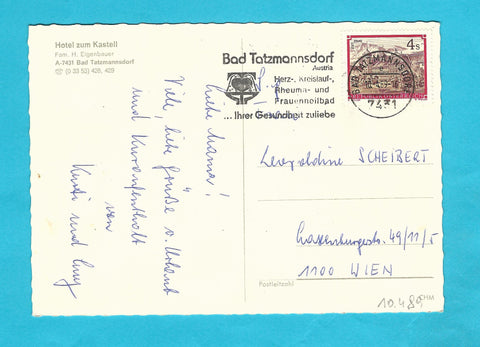 Hotel zum Kastell
Fam. H. Eigenbauer
A-7431 Bad Tatzmannsdorf
☏ (0 33 53) 428, 429
Bad Tatzmannsdorf
Austria
Herz-, Kreislauf-,
Rheuma- und
Frauenheilbad
... Ihrer Gesundheit zuliebe
4 S
BAD TATZMANNSDORF
7431
Liebe Mama!
Viele, liebe Grüße v. Urlaub
und Kuraufenthalt
von
Kurti und
Leopoldine SCHEIBERT
Laxenburgerstr. 49/11/5
1100 WIEN
Postleitzahl
10.4.89
EHM